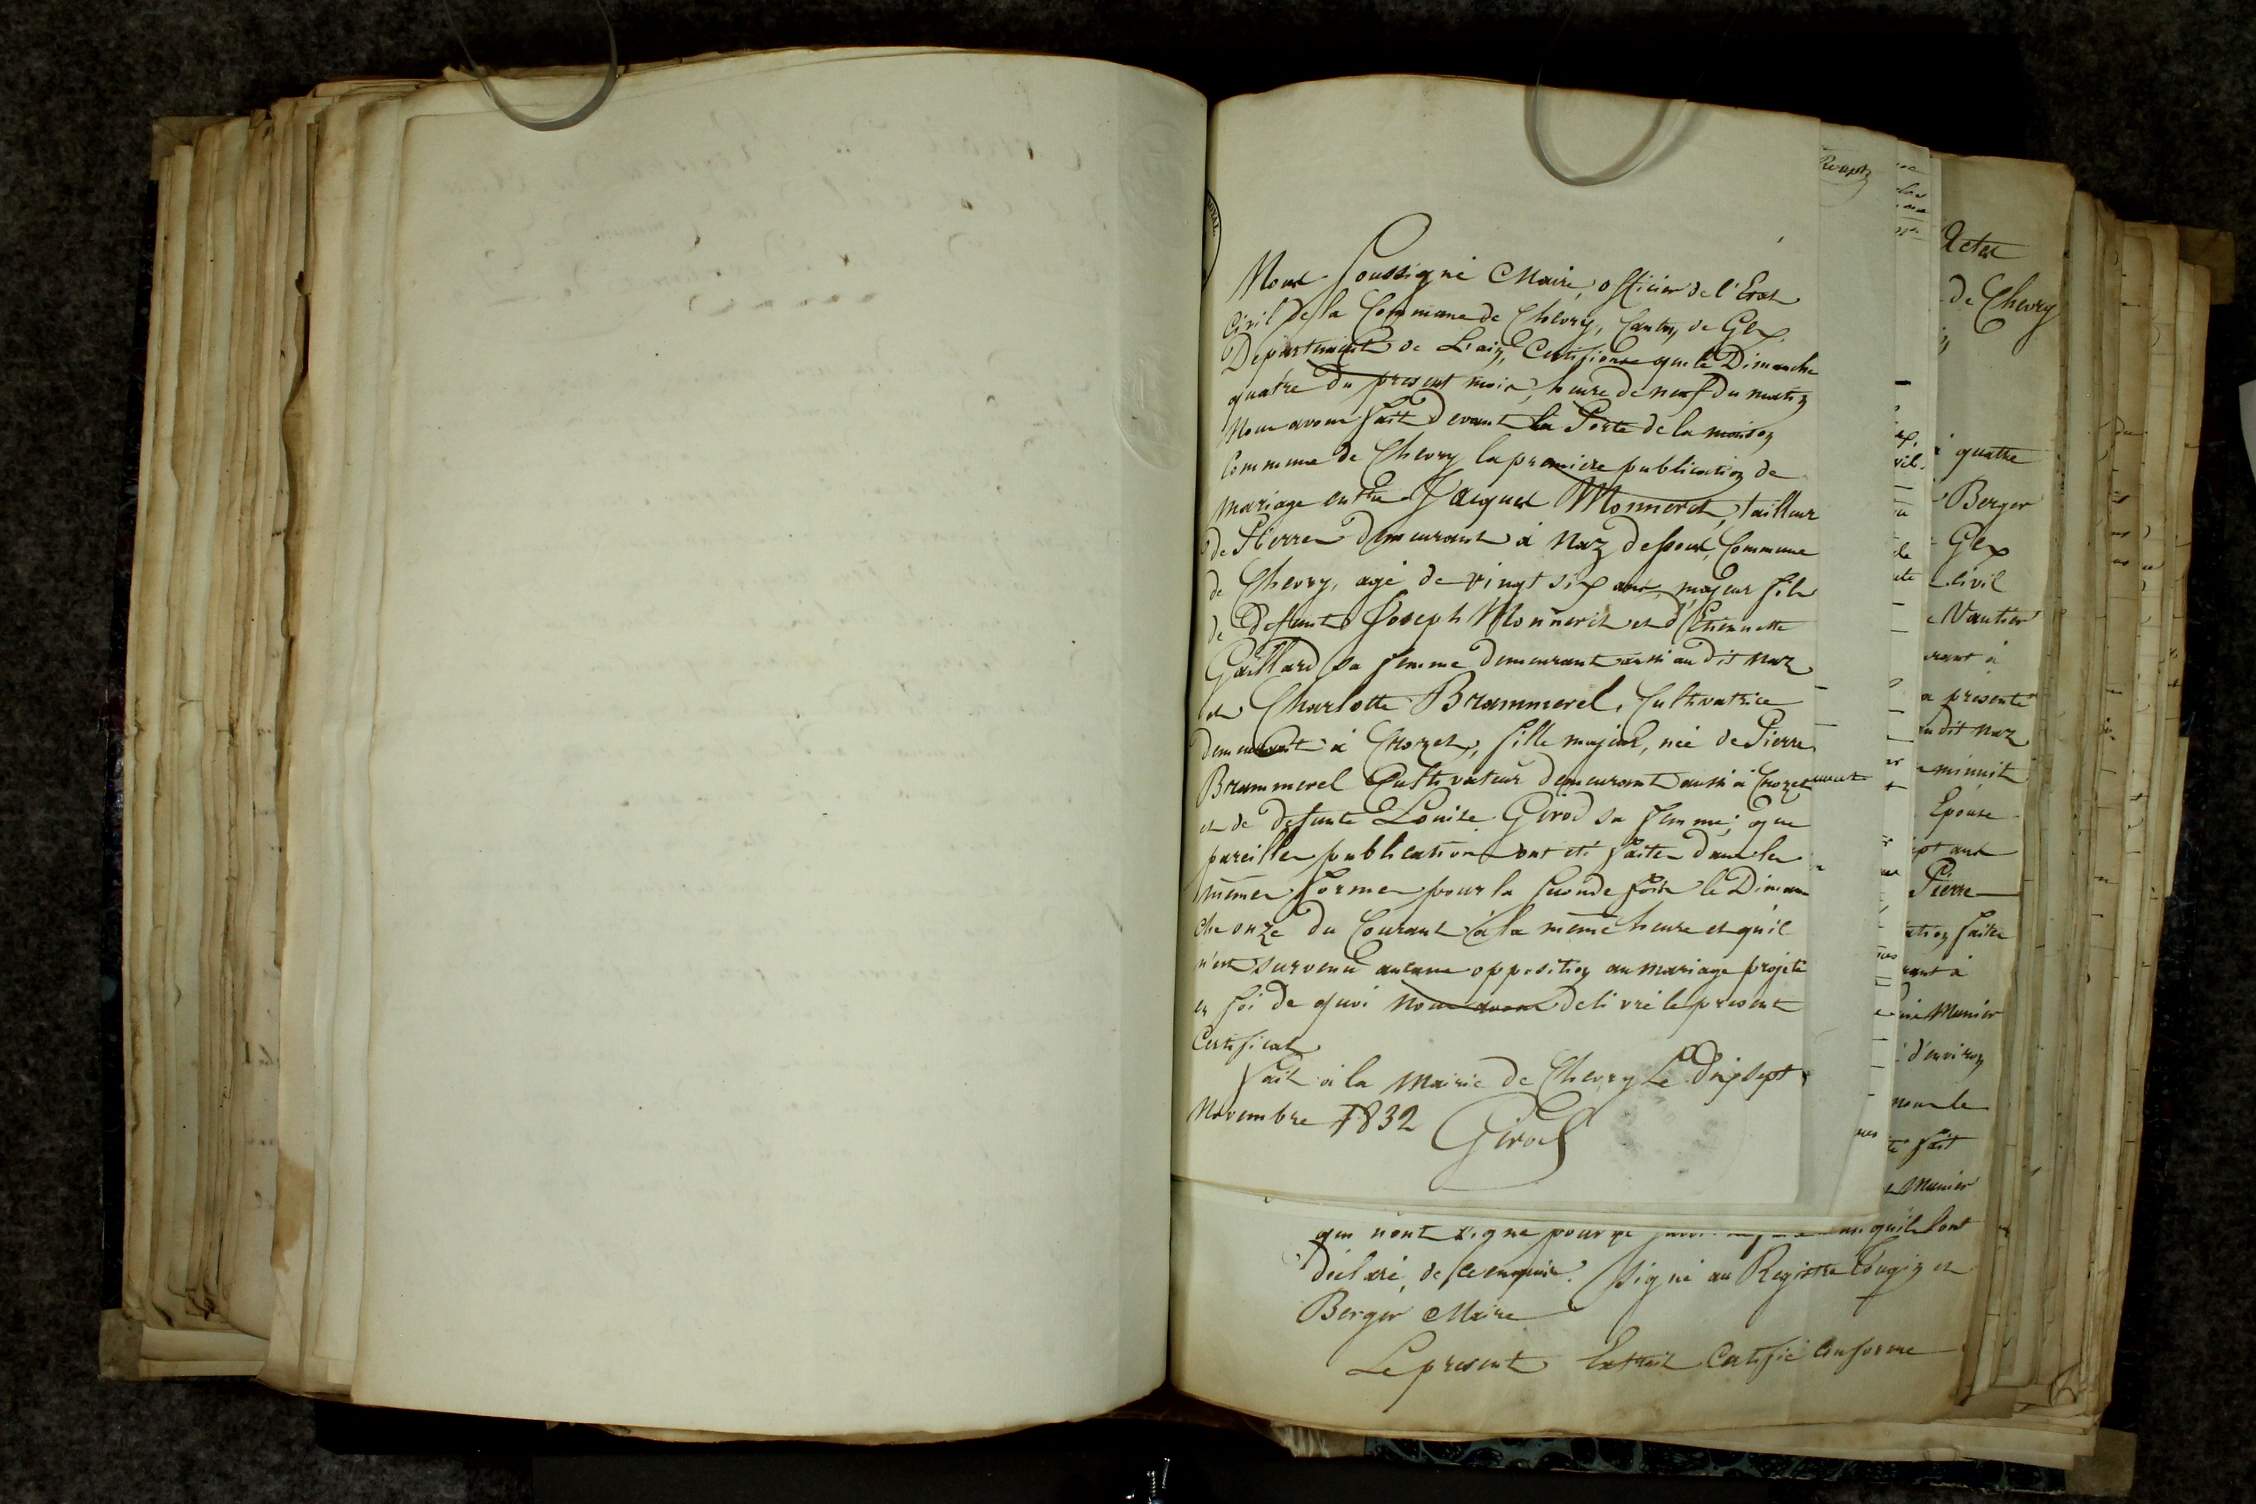 Nous Soussigné Maire, officier de l'Etat
Civil de la Commune de Chevry, Canton de Gex
Departement de L'ain, Certifions que le Dimanche
quatre du present mois, heure de neuf du matin
Nous avons fait devant la Porte de la maison
Commune de Chevry la premiere publication de
mariage entre Jacques Monneret, tailleur
de Pierre demeurant à Naz dessous, Commune
de Chevry, agé de vingt six ans, majeur fils
de defunt Joseph Monneret et d'Etiennette
Gaillard sa femme demeurant aussi au dit Naz
et Charlotte Brammerel, Cultivatrice
demeurant à Crozet, fille majeur, née de Pierre
Brammerel Cultivateur demeurant aussi à Crozet
et de defunte Louise Girod sa femme; que
pareilles publications ont été faites dans les
mêmes formes pour la seconde fois le Diman
che onze du Courant à la même heure et qu'il
n'est survenu aucune opposition au mariage projeté
en foi de quoi nous avons delivré le present
Certificat
fait à la Mairie de Chevry Le dix sept
Novembre 1832
Girod
qui n'ont signé pour ne qu'ils l'ont
déclaré, de ce enquis. Signé au Registre Tougin et
Berger Maire
Le present Extrait Certifié Conforme
Actes
de Chevry
quatre
Berger
Gex
Civil
Vautier
rant à
a presenté
u dit Naz
minuit
Epouse
ept ans
Pierre
ation faite
rant à
Munier
d'environ
nous le
fait
Munier